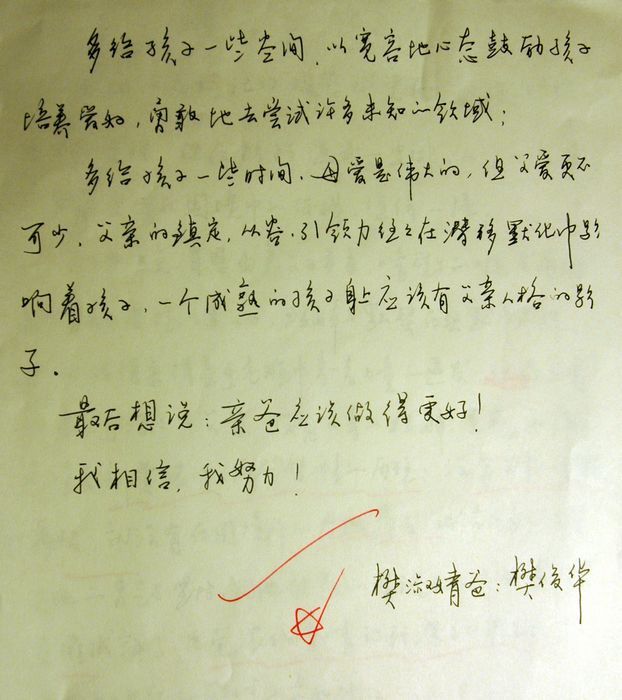 多给孩子一些空间,以宽容地心态鼓励孩子
培养爱好,勇敢地去尝试许多未知的领域;
多给孩子一些时间.母爱是伟大的,但父爱更不
可少.父亲的镇定,从容.引领力往往在潜移默化中影
响着孩子,一个成熟的孩子身上应该有父亲人格的影
子.
最后想说:亲爸应该做得更好!
我相信,我努力!
樊淑婧爸:樊俊华